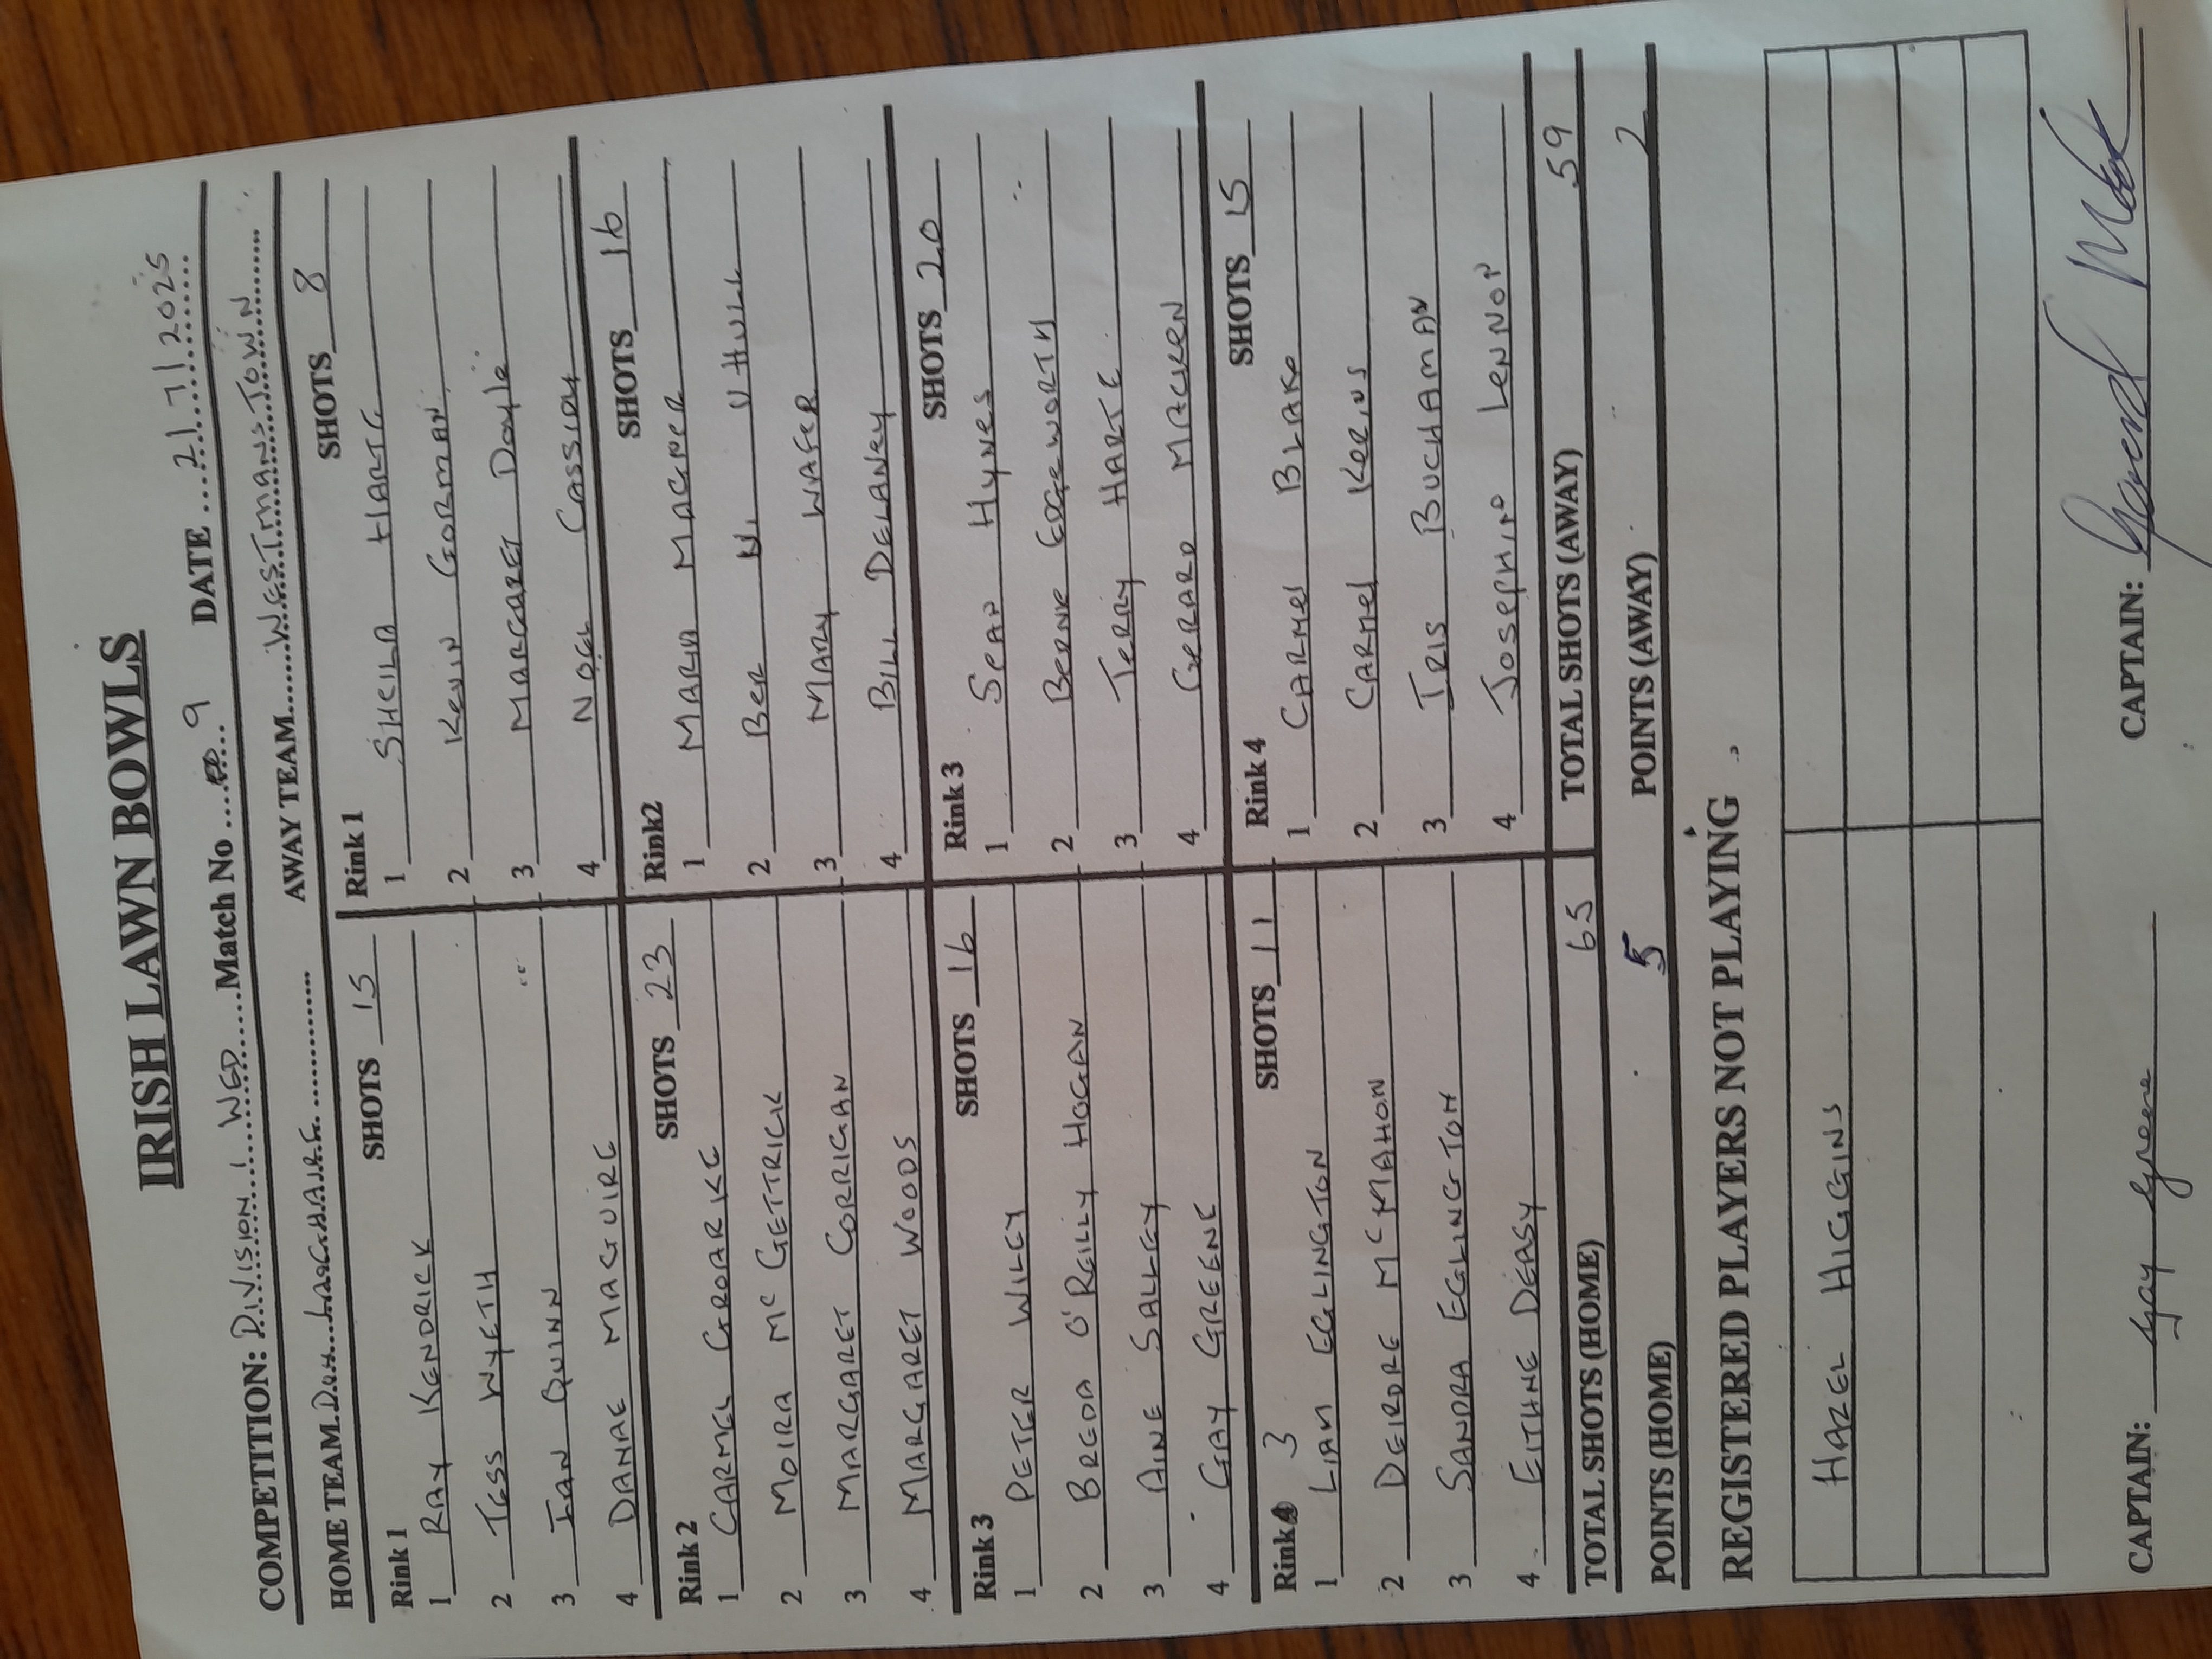 IRISH LAWN BOWLS
COMPETITION: DIVISION 1 WED Match No 9 DATE 21/7/2025
HOME TEAM D.L.H. LAOGHAIRE AWAY TEAM WESTMANSTOWN
SHOTS 15
Rink 1
1 RAY KENDRICK
2 TESS WYETH
3 IAN QUINN
4 DANAE MAGUIRE
SHOTS 8
Rink 1
1 SHEILA HARTE
2 KEVIN GORMAN
3 MARGARET DOYLE
4 NOEL CASSIDY
SHOTS 23
Rink 2
1 CARMEL GROARKE
2 MOIRA Mc GETTRICK
3 MARGARET CORRIGAN
4 MARGARET WOODS
SHOTS 16
Rink2
1 MARIA MAGNER
2 BER
3 MARY WAFER
4 BILL DELANEY
SHOTS 16
Rink 3
1 PETER WILEY
2 BREDA O'REILLY HOGAN
3 AINE SALLEY
4 GAY GREENE
SHOTS 20
Rink 3
1 SEAN HYNES
2 BERNIE EDGEWORTH
3 TERRY HARTE
4 GERARD MACKEN
SHOTS 11
Rink 3
1 LIAM EGLINGTON
2 DEIRDRE McMAHON
3 SANDRA EGLINGTON
4 EITHNE DEASY
SHOTS 15
Rink 4
1 CARMEL BLAKE
2 CARMEL KERINS
3 IRIS BUCHAMAN
4 JOSEPHINE LENNON
TOTAL SHOTS (HOME) 65 TOTAL SHOTS (AWAY) 59
POINTS (HOME) 5 POINTS (AWAY) 2
REGISTERED PLAYERS NOT PLAYING
HAZEL HIGGINS
CAPTAIN: Gay Greene CAPTAIN: Gerard